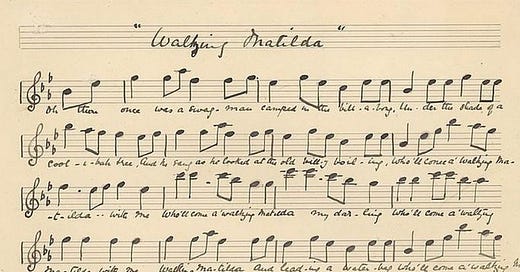 "Waltzing Matilda"
Oh there once was a Swag-man camped in the bill-a-bong, Un-der the shade of a
cool-i-bah tree, And he sang as he looked at the old billy boil-ing, who'll come a' waltzing Ma-
-t-ilda-- with me Who'll come a' waltzing Matilda my dar-ling Who'll come a' waltzing
Ma-tilda with me Waltzing Ma-tilda and lead-ing a water-bag who'll come a' waltzing